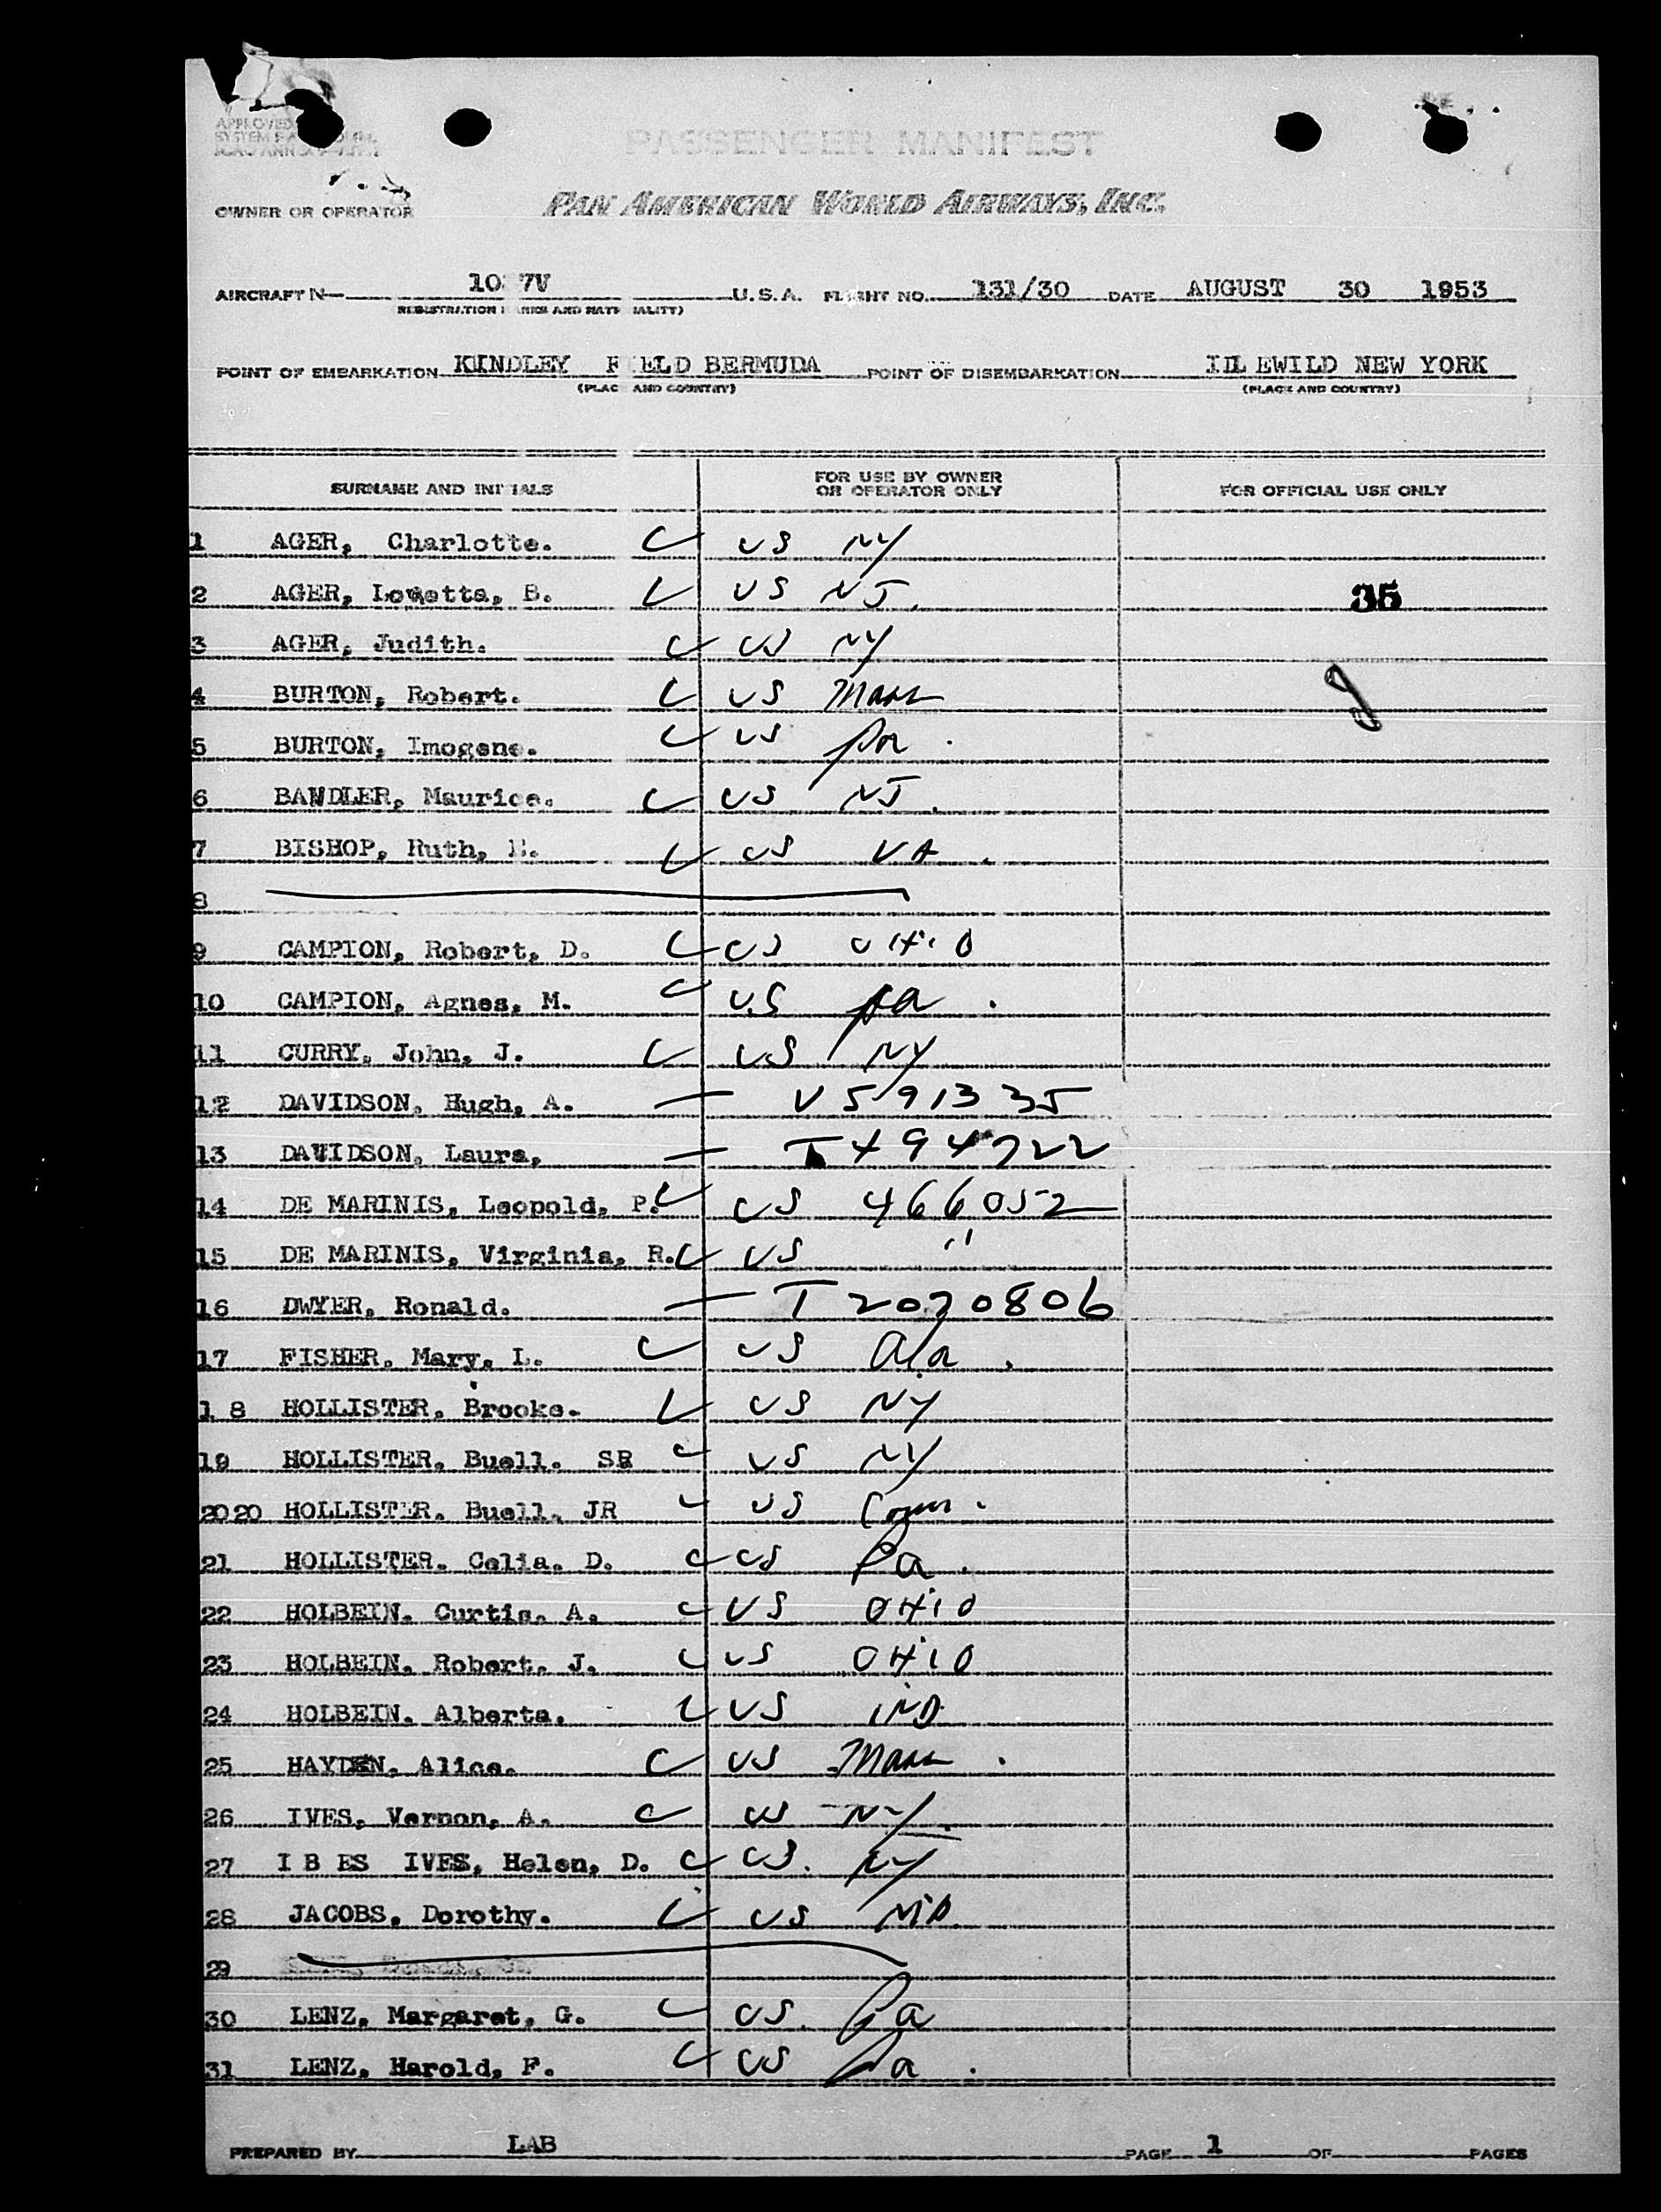 APPROVED
SYSTEM
PASSENGER MANIFEST
OWNER OR OPERATOR PAN AMERICAN WORLD AIRWAYS, INC.
AIRCRAFT N 10 7V U.S.A. FLIGHT NO. 131/30 DATE AUGUST 30 1953
REGISTRATION MARKS AND NATIONALITY)
POINT OF EMBARKATION KINDLEY FIELD BERMUDA POINT OF DISEMBARKATION IDLEWILD NEW YORK
(PLACE AND COUNTRY) (PLACE AND COUNTRY)
SURNAME AND INITIALS FOR USE BY OWNER OR OPERATOR ONLY FOR OFFICIAL USE ONLY
1 AGER, Charlotte. US NY
2 AGER, Loretta, B. US NJ. 35
3 AGER, Judith. US NY
4 BURTON, Robert. US Mass
5 BURTON, Imogene. US Pa.
6 BANDLER, Maurice. US NJ.
7 BISHOP, Ruth, US VA.
8
9 CAMPION, Robert, D. US OHIO
10 CAMPION, Agnes, M. US Pa.
11 CURRY, John, J. US NY
12 DAVIDSON, Hugh, A. — V591335
13 DAVIDSON, Laura, — T494722
14 DE MARINIS, Leopold, P. US 466052
15 DE MARINIS, Virginia, R. US "
16 DWYER, Ronald. — T2070806
17 FISHER, Mary, L. US Ala.
1 8 HOLLISTER, Brooke. US NY
19 HOLLISTER, Buell. SR US NY
2020 HOLLISTER, Buell, JR US Conn.
21 HOLLISTER, Celia, D. US Pa.
22 HOLBEIN, Curtis, A. US OHIO
23 HOLBEIN, Robert, J. US OHIO
24 HOLBEIN, Alberta. US IND
25 HAYDEN, Alice. US Mass.
26 IVES, Vernon, A. US NY.
27 I B ES IVES, Helen, D. US. NY
28 JACOBS, Dorothy. US MD.
29
30 LENZ, Margaret, G. US. Pa
31 LENZ, Harold, F. US Pa.
PREPARED BY LAB PAGE 1 OF PAGES